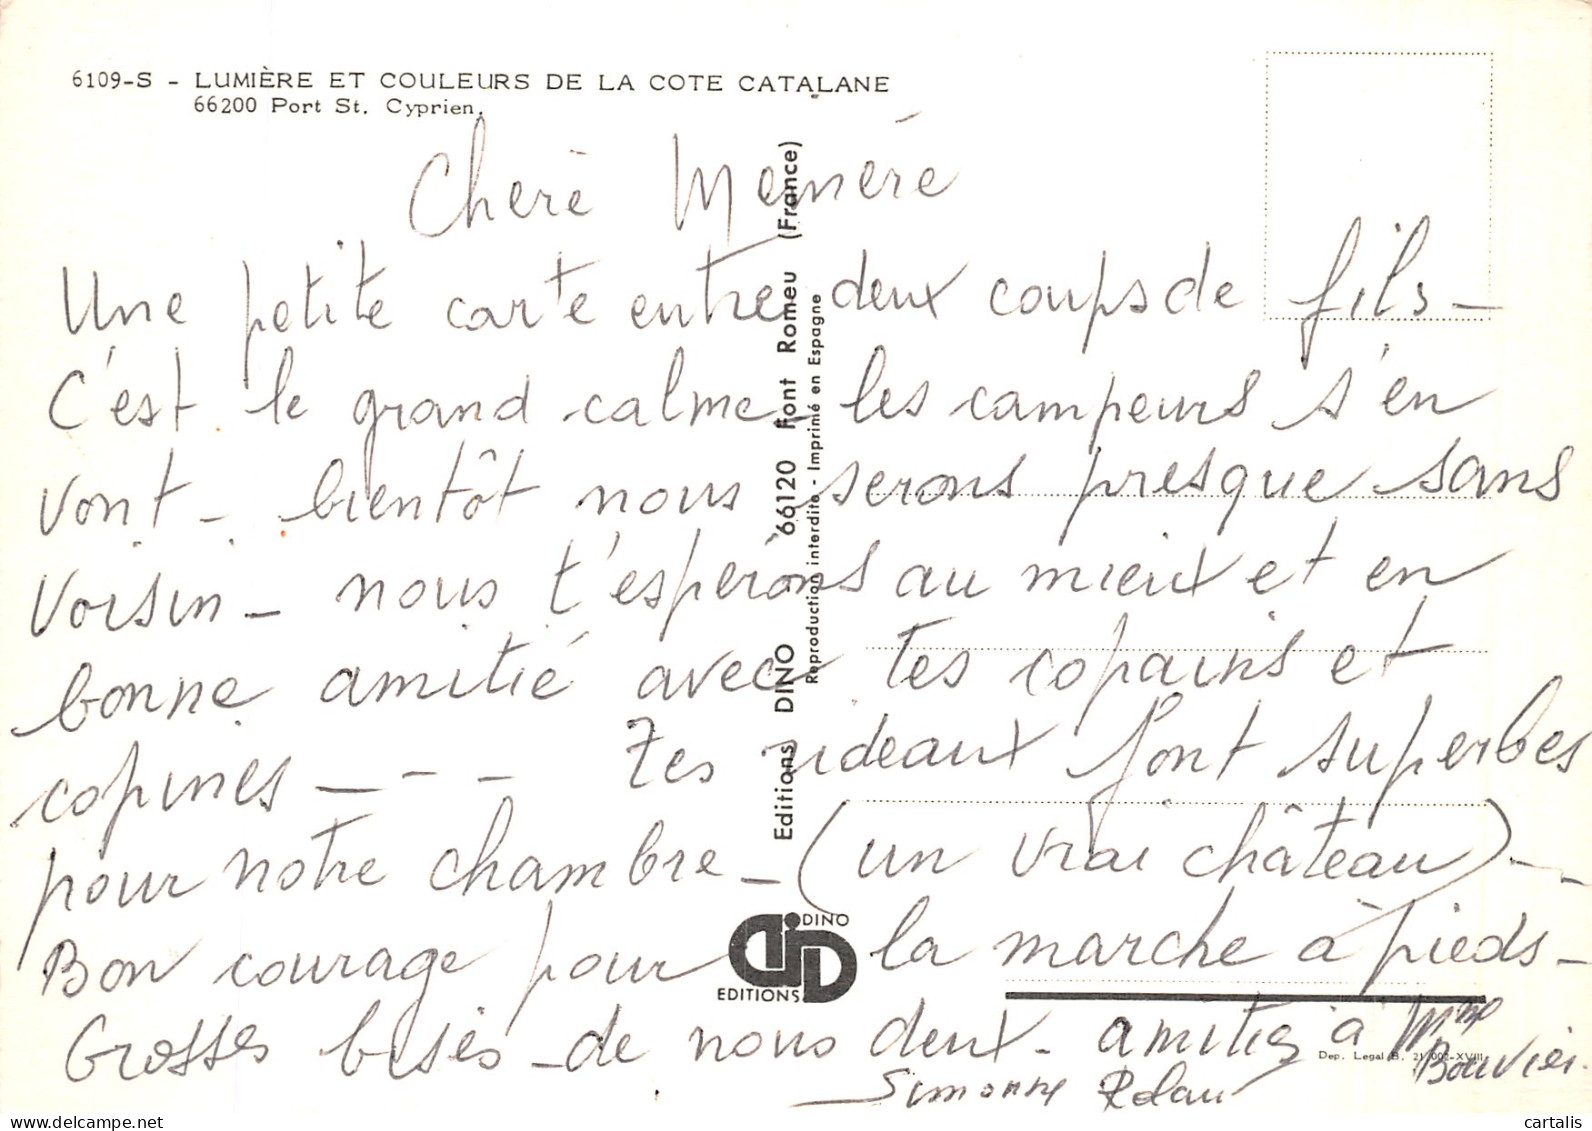 6109-S - LUMIÈRE ET COULEURS DE LA COTE CATALANE
66200 Port St. Cyprien.
Cherè Memére
Une petite carte entre deux coups de fils -
C'est le grand calme - les campeurs s'en
vont - bientôt nous serons presque sans
voisin - nous t'espérons au mieux et en
bonne amitié avec tes copains et
copines - - - Tes rideaux font superbes
pour notre chambre - (un vrai château) - -
Bon courage pour la marche à pieds -
Grosses bises - de nous deux - amitiés à Mme
Bouvier.
Simonne Rolan
Editions DINO 66120 Font Romeu (France)
Reproduction interdite - Imprimé en Espagne
DINO
EDITIONS
Dep. Legal B. 21.002-XVIII
cartalis